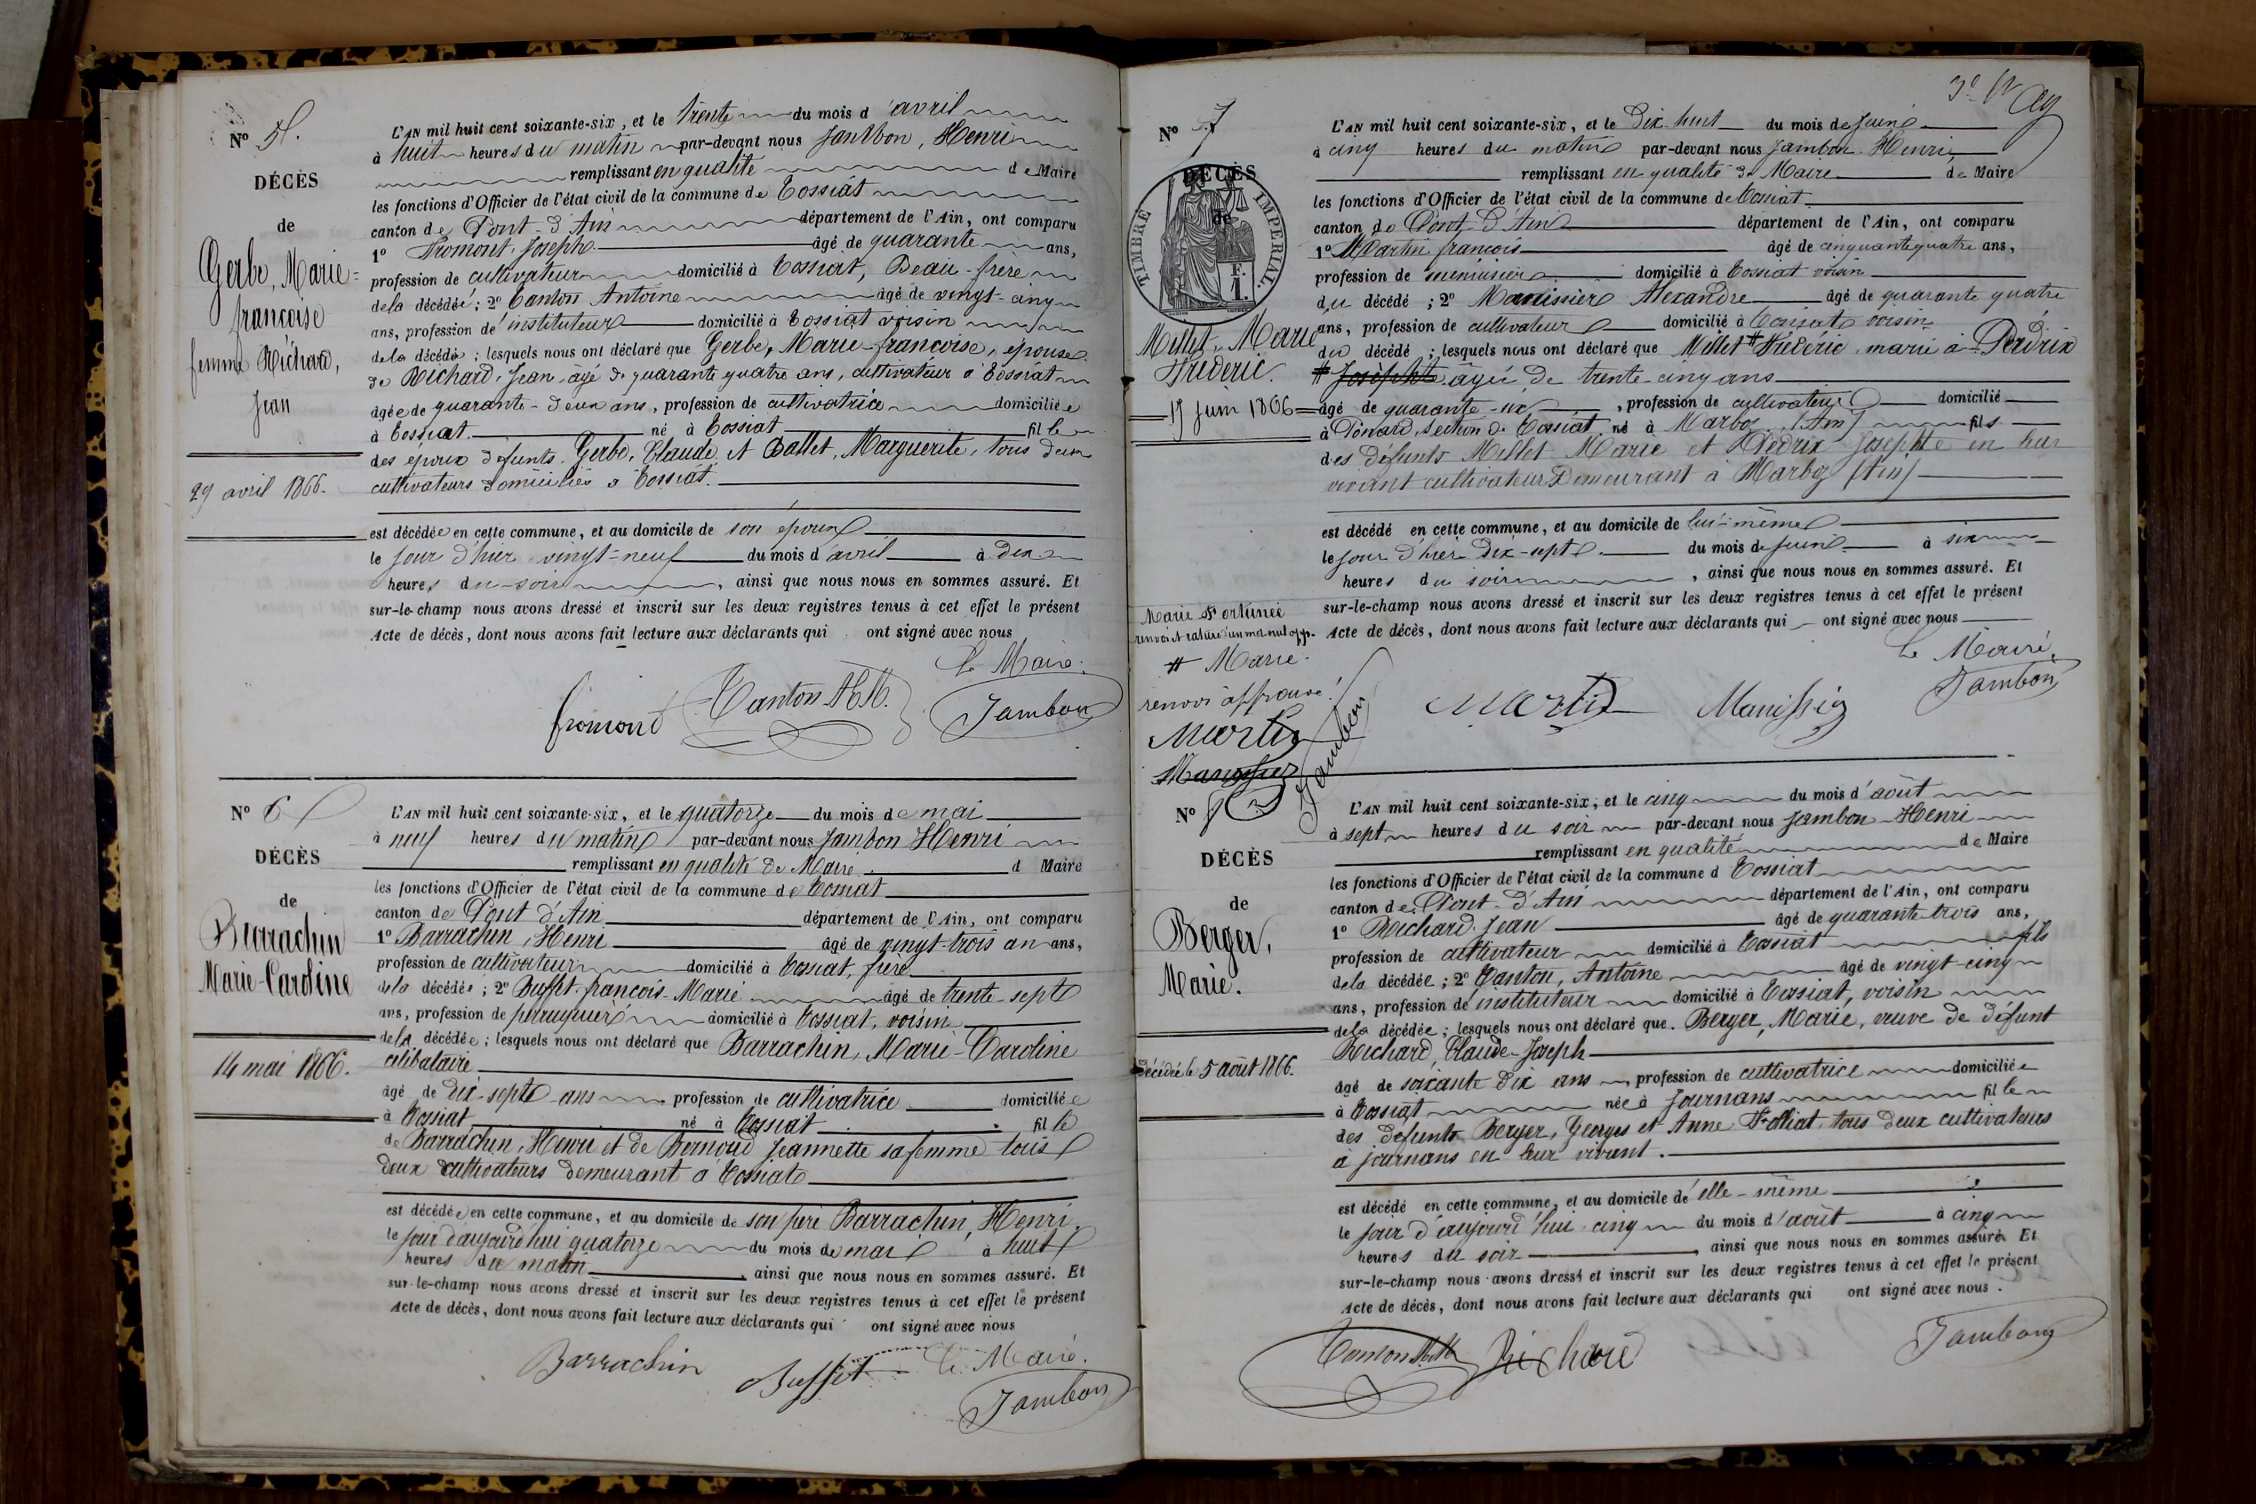 Nº 5.
DÉCÈS
de
Gerbe, Marie-
françoise
femme Richard,
Jean
29 avril 1866.
L'AN mil huit cent soixante-six, et le trente du mois d'avril
à huit heures du matin par-devant nous Jambon, Henri
remplissant en qualité de Maire
les fonctions d'Officier de l'état civil de la commune de Tossiat
canton de Pont-d'Ain département de l'Ain, ont comparu
1º Fromont, Joseph âgé de quarante ans,
profession de cultivateur domicilié à Tossiat, Beau-frère
de la décédée; 2º Tanton Antoine âgé de vingt-cinq
ans, profession de instituteur domicilié à Tossiat voisin
de la décédée; lesquels nous ont déclaré que Gerbe, Marie-françoise, épouse
de Richard, Jean âgé de quarante quatre ans, cultivateur à Tossiat
âgée de quarante-deux ans, profession de cultivatrice domiciliée
à Tossiat né à Tossiat fille
des époux défunts Gerbe, Claude et Ballet, Marguerite, tous deux
cultivateurs domiciliés à Tossiat.
est décédée en cette commune, et au domicile de son époux
le jour d'hier vingt-neuf du mois d'avril à dix
heures du soir, ainsi que nous nous en sommes assuré. Et
sur-le-champ nous avons dressé et inscrit sur les deux registres tenus à cet effet le présent
Acte de décès, dont nous avons fait lecture aux déclarants qui ont signé avec nous
Le Maire.
fromond Tanton Jambon
Nº 6
DÉCÈS
de
Barrachin
Marie-Caroline
14 mai 1866.
L'AN mil huit cent soixante-six, et le quatorze du mois de mai
à neuf heures du matin par-devant nous Jambon Henri
remplissant en qualité de Maire d Maire
les fonctions d'Officier de l'état civil de la commune de Tossiat
canton de Pont d'Ain département de l'Ain, ont comparu
1º Barrachin, Henri âgé de vingt-trois an ans,
profession de cultivateur domicilié à Tossiat, frère
de la décédée; 2º Buffet françois-Marie âgé de trente-sept
ans, profession de perruquier domicilié à Tossiat, voisin
de la décédée; lesquels nous ont déclaré que Barrachin, Marie-Caroline
célibataire
âgé de dix-sept ans profession de cultivatrice domiciliée
à Tossiat né à Tossiat fille
de Barrachin, Henri et de Bernoud Jeannette sa femme tous
deux cultivateurs demeurant à Tossiat
est décédée en cette commune, et au domicile de son père Barrachin, Henri,
le jour d'aujourd'hui quatorze du mois de mai à huit
heures du matin, ainsi que nous nous en sommes assuré. Et
sur-le-champ nous avons dressé et inscrit sur les deux registres tenus à cet effet le présent
Acte de décès, dont nous avons fait lecture aux déclarants qui ont signé avec nous
Barrachin Buffet Le Maire.
Jambon
Nº 7
DÉCÈS
de
TIMBRE IMPÉRIAL.
Millet, Marie
Fréderic.
17 juin 1866
L'AN mil huit cent soixante-six, et le Dix-huit du mois de juin
à cinq heures du matin par-devant nous Jambon Henri
remplissant en qualité de Maire de Maire
les fonctions d'Officier de l'état civil de la commune de Tossiat
canton de Pont-d'Ain département de l'Ain, ont comparu
1º Martin françois âgé de cinquante quatre ans,
profession de menuisier domicilié à Tossiat voisin
du décédé; 2º Manissier Alexandre âgé de quarante quatre
ans, profession de cultivateur domicilié à Tossiat voisin
du décédé; lesquels nous ont déclaré que Millet # Fréderic marié à Perdrix
# Josephte âgée de trente-cinq ans
âgé de quarante-six, profession de cultivateur domicilié
à Tossiat né à Marboz (Ain) fils
des défunts Millet Marie et Josephte en leur
vivant cultivateurs Demeurant à Marboz (Ain)
est décédé en cette commune, et au domicile de lui-même
le jour d'hier Dix-sept du mois de juin à six
heures du soir, ainsi que nous nous en sommes assuré. Et
sur-le-champ nous avons dressé et inscrit sur les deux registres tenus à cet effet le présent
Acte de décès, dont nous avons fait lecture aux déclarants qui ont signé avec nous
Le Maire.
Martin Manissier Jambon
Marie Fortunée
renvoi et rature d'un mot nul app.
# Marie.
renvoi approuvé!
Martin
Manissier
Jambon
Nº 8
DÉCÈS
de
Berger,
Marie.
Décédée le 5 août 1866.
L'AN mil huit cent soixante-six, et le cinq du mois d'août
à sept heures du soir par-devant nous Jambon Henri
remplissant en qualité de Maire
les fonctions d'Officier de l'état civil de la commune d Tossiat
canton de Pont-d'Ain département de l'Ain, ont comparu
1º Richard Jean âgé de quarante-trois ans,
profession de cultivateur domicilié à Tossiat fils
de la décédée; 2º Tanton, Antoine âgé de vingt-cinq
ans, profession de instituteur domicilié à Tossiat, voisin
de la décédée; lesquels nous ont déclaré que Berger, Marie, veuve de défunt
Richard, Claude-Joseph
âgé de soixante dix ans, profession de cultivatrice domiciliée
à Tossiat née à Journans fille
des défunts Berger, Georges et Anne Folliat tous deux cultivateurs
à journans en leur vivant.
est décédé en cette commune, et au domicile de elle-même
le jour d'aujourd'hui cinq du mois d'août à cinq
heures du soir, ainsi que nous nous en sommes assuré. Et
sur-le-champ nous avons dressé et inscrit sur les deux registres tenus à cet effet le présent
Acte de décès, dont nous avons fait lecture aux déclarants qui ont signé avec nous.
Tanton Richard Jambon